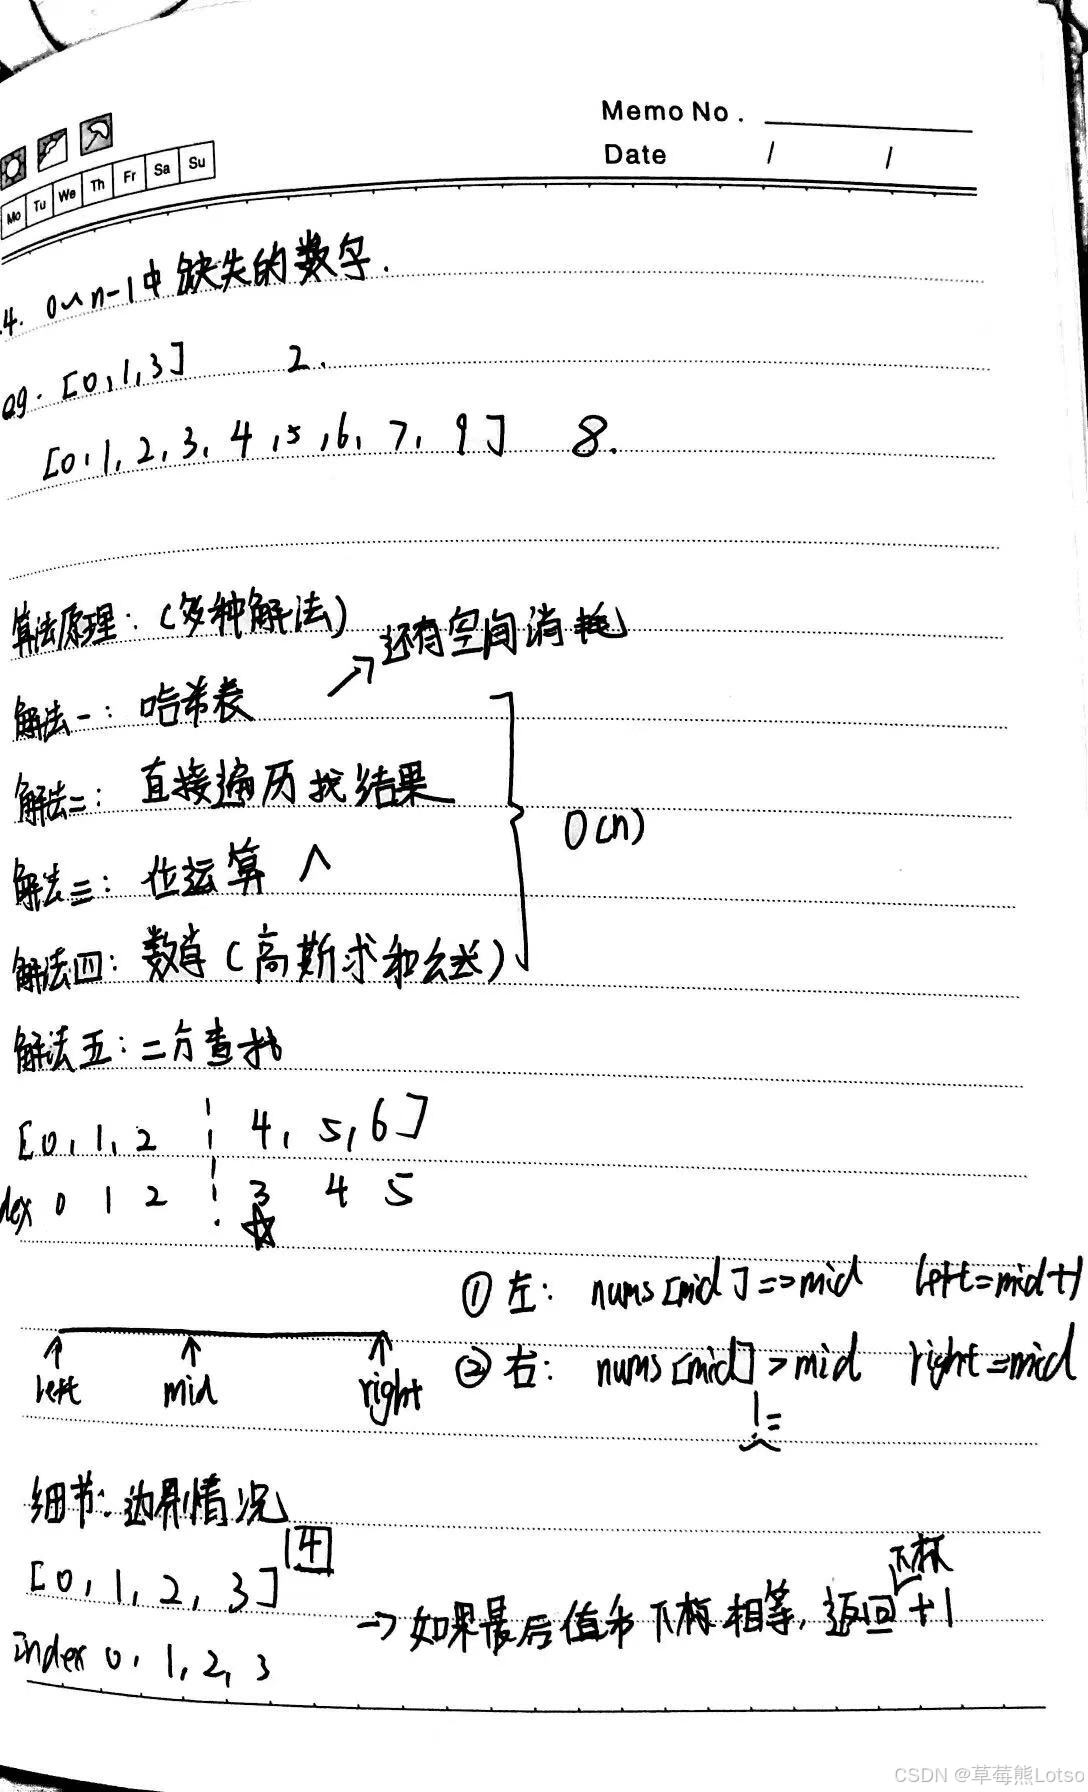 Memo No.
Date / /
Mo Tu We Th Fr Sa Su
4. 0~n-1中缺失的数字.
eg. [0,1,3] 2.
[0,1,2,3,4,5,6,7,9] 8.
算法原理：(多种解法)
还有空间消耗
解法一：哈希表
解法二：直接遍历找结果
O(n)
解法三：位运算 ^
解法四：数学(高斯求和公式)
解法五：二分查找
[0,1,2 4,5,6]
dex 0 1 2 3 4 5
①左：nums[mid]==mid left=mid+1
left mid right
②右：nums[mid]>mid right=mid
!=
细节：边界情况
[0,1,2,3] 4
Index 0,1,2,3
→如果最后值和下标相等,返回下标+1
CSDN @草莓熊Lotso